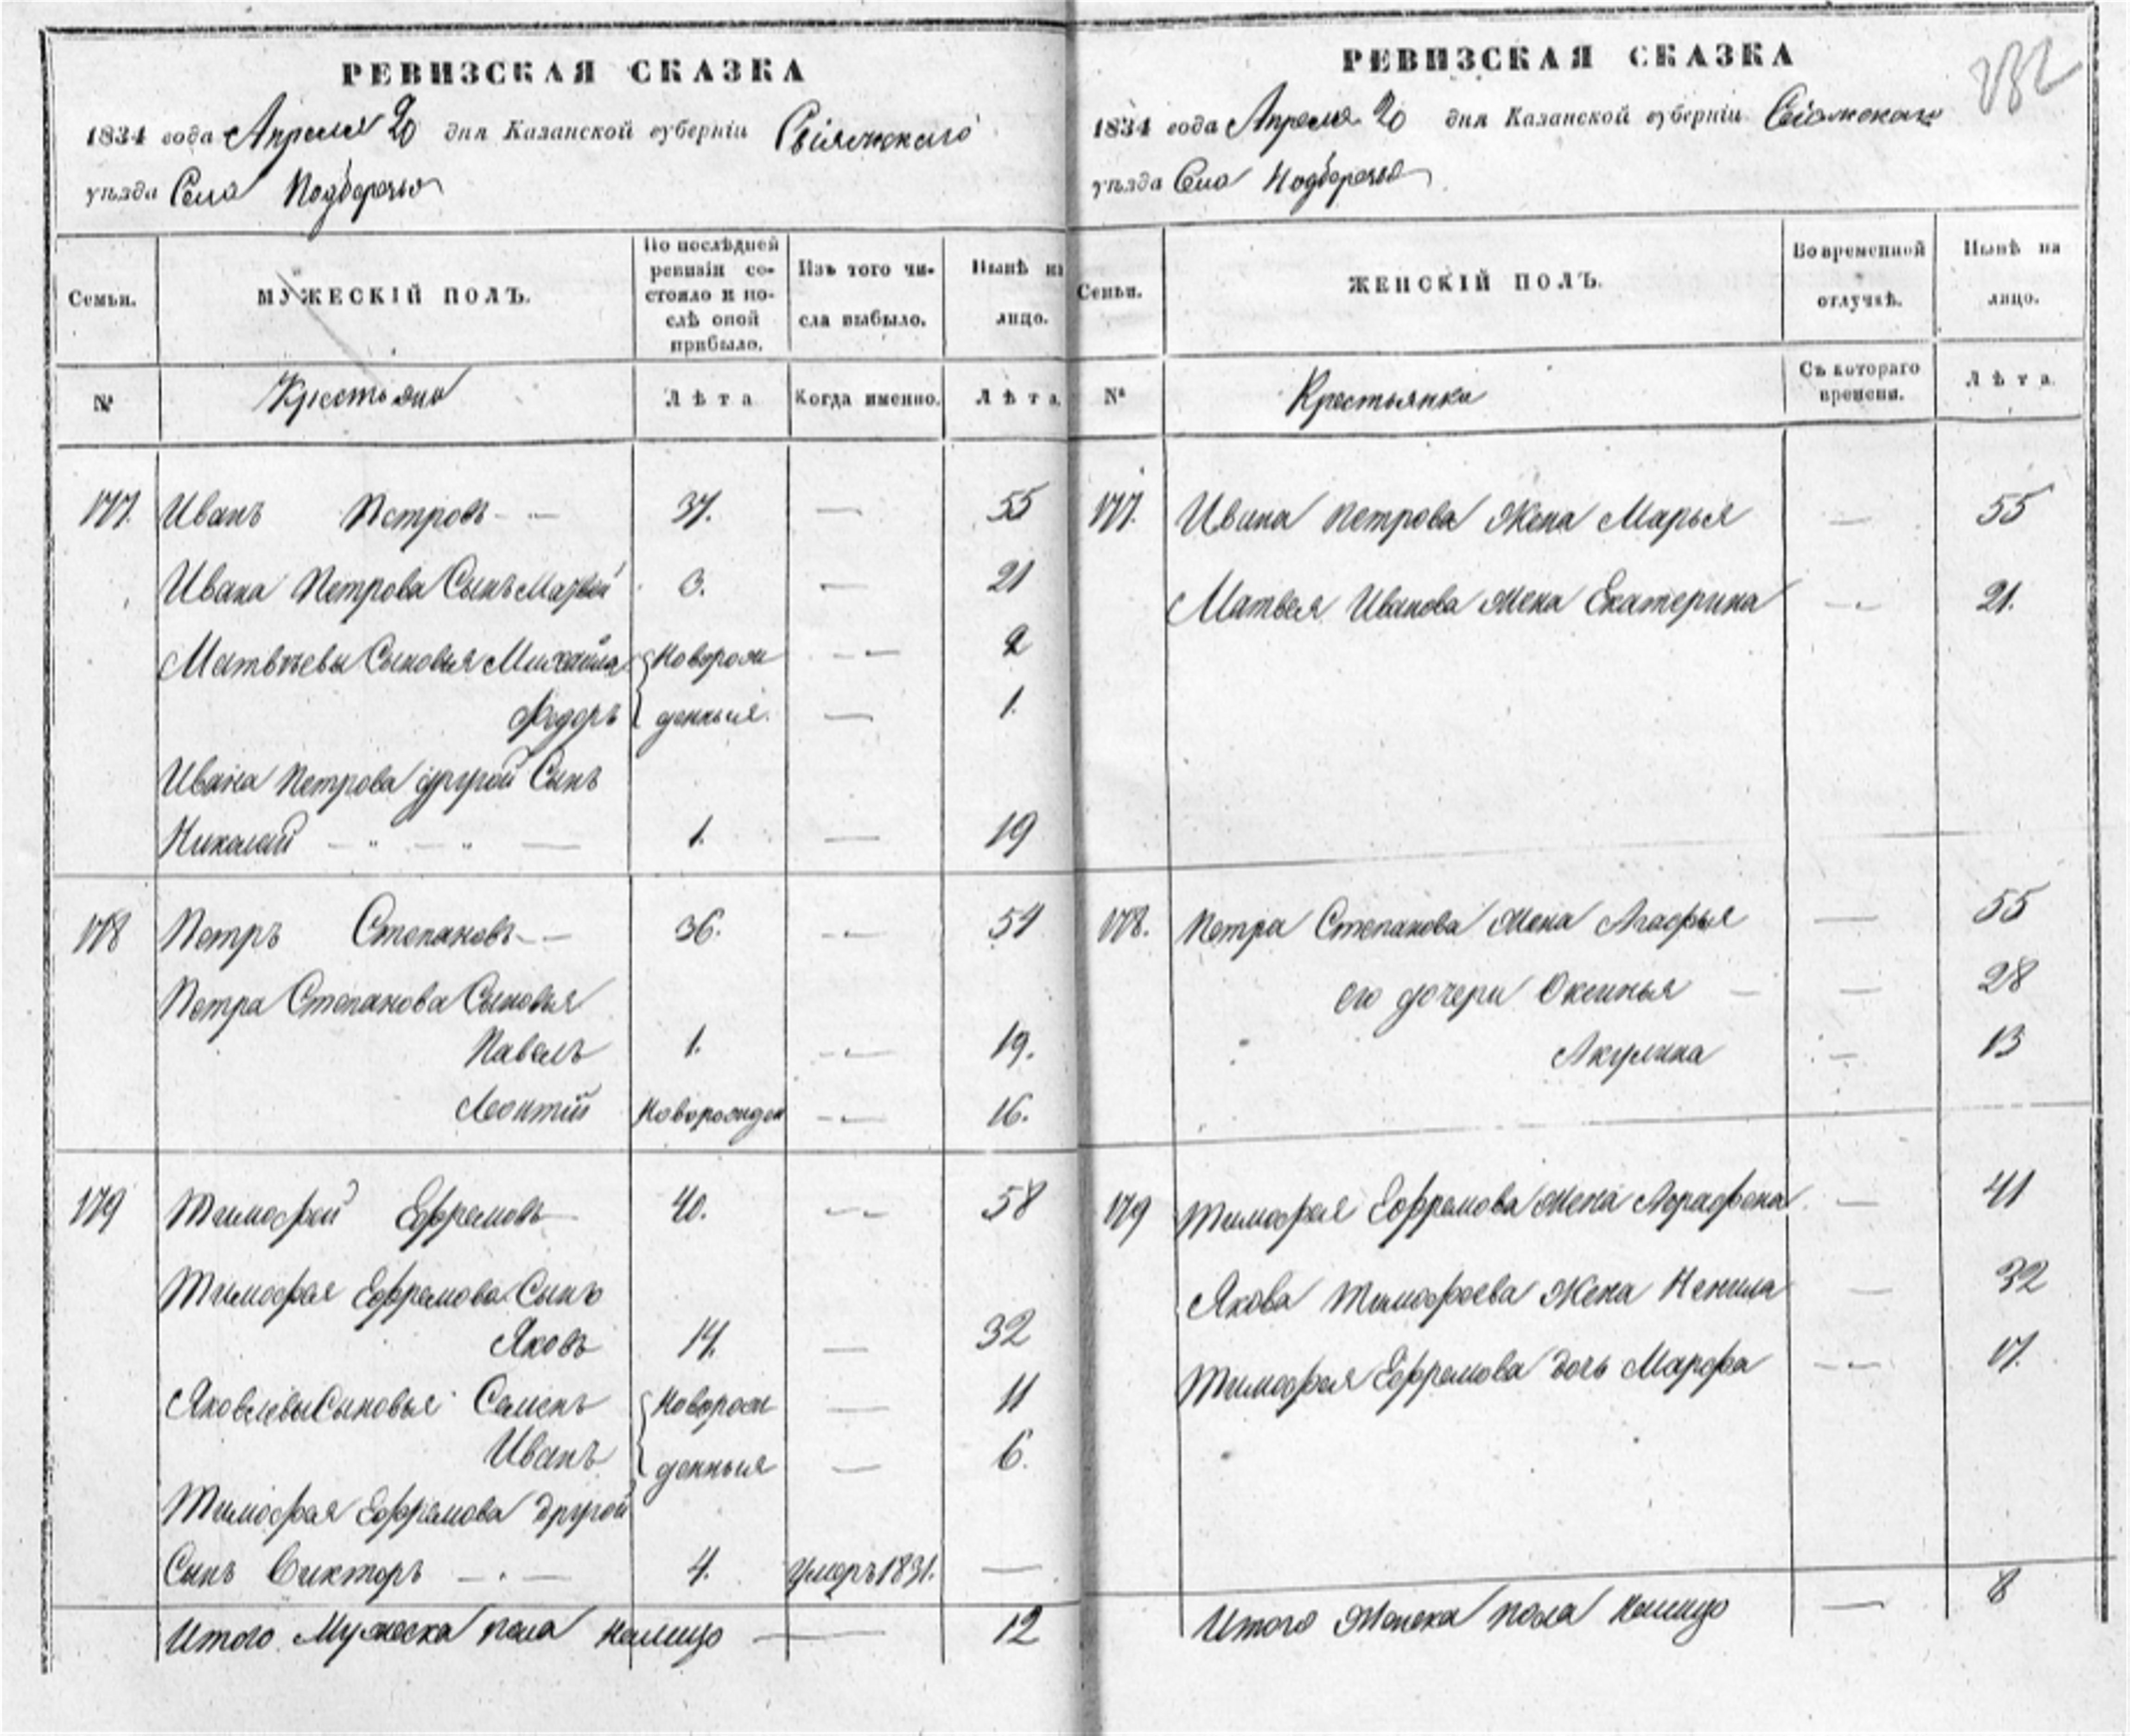 РЕВИЗСКАЯ СКАЗКА
1834 года Апреля 20 дня Казанской губерніи Свіяжскаго
уѣзда Села Подберезья
Семьи.
МУЖЕСКІЙ ПОЛЪ.
По послѣдней
ревизіи со-
стояло и по-
слѣ оной
прибыло.
Изъ того чи-
сла выбыло.
Нынѣ на
лицо.
№
Крестьяне
Лѣта
Когда именно.
Лѣта
177. Иванъ Петровъ 37. — 55
Ивана Петрова Сынъ Матвѣй 3. — 21
Матвѣевы Сыновья Михайла Новорож — 2
Федоръ денныя. — 1.
Ивана Петрова другой Сынъ
Николай 1. — 19
178 Петръ Степановъ 36. — 54
Петра Степанова Сыновья
Павелъ 1. — 19.
Леонтій Новорожден — 16.
179 Тимофей Ефремовъ 40. — 58
Тимофея Ефремова Сынъ
Яковъ 14. — 32
Яковлевы Сыновья Семенъ Новорож — 11
Иванъ денныя — 6.
Тимофея Ефремова другой
Сынъ Викторъ 4. Умеръ 1831. —
Итого Мужеска пола налицо — 12
РЕВИЗСКАЯ СКАЗКА
1834 года Апреля 20 дня Казанской губерніи Свіяжскаго
уѣзда Села Подберезья
Семьи.
ЖЕНСКІЙ ПОЛЪ.
Во временной
отлучкѣ.
Нынѣ на
лицо.
№
Крестьянка
Съ котораго
времени.
Лѣта
177. Ивана Петрова Жена Марья — 55
Матвея Иванова Жена Екатерина — 21.
178. Петра Степанова Жена Агафья — 55
его дочери Оксинья — 28
Акулина — 13
179 Тимофея Ефремова Жена Аграфена — 41
Якова Тимофеева Жена Ненила — 32
Тимофея Ефремова дочь Марфа — 17.
Итого Женска пола налицо — 8